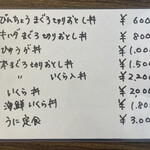 びんちょうまぐろ切りおとし丼 ¥600
キングまぐろ切りおとし丼 ¥800
ひゅうが丼 ¥1,000
本まぐろ切りおとし丼 ¥1,500
〃 いくら入丼 ¥2,200
いくら丼 ¥2,000
海鮮いくら丼 ¥1,800
うに定食 ¥3,000